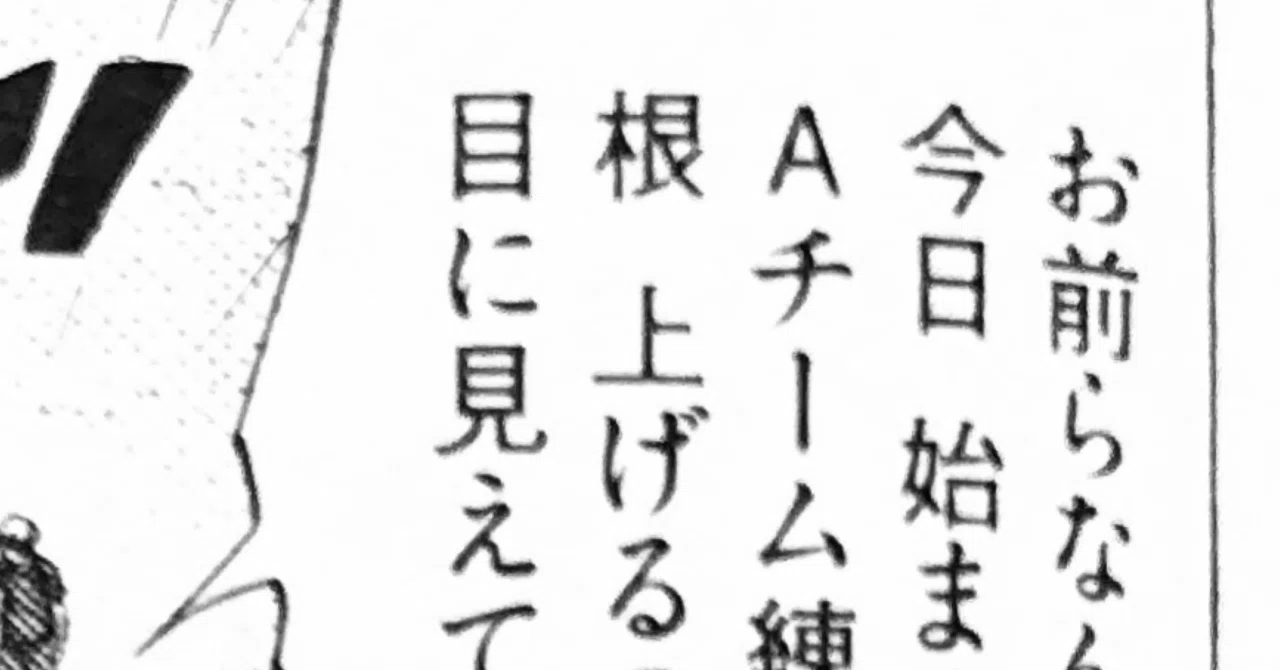 お前らなん
今日 始ま
Aチーム練
根 上げる
目に見えて